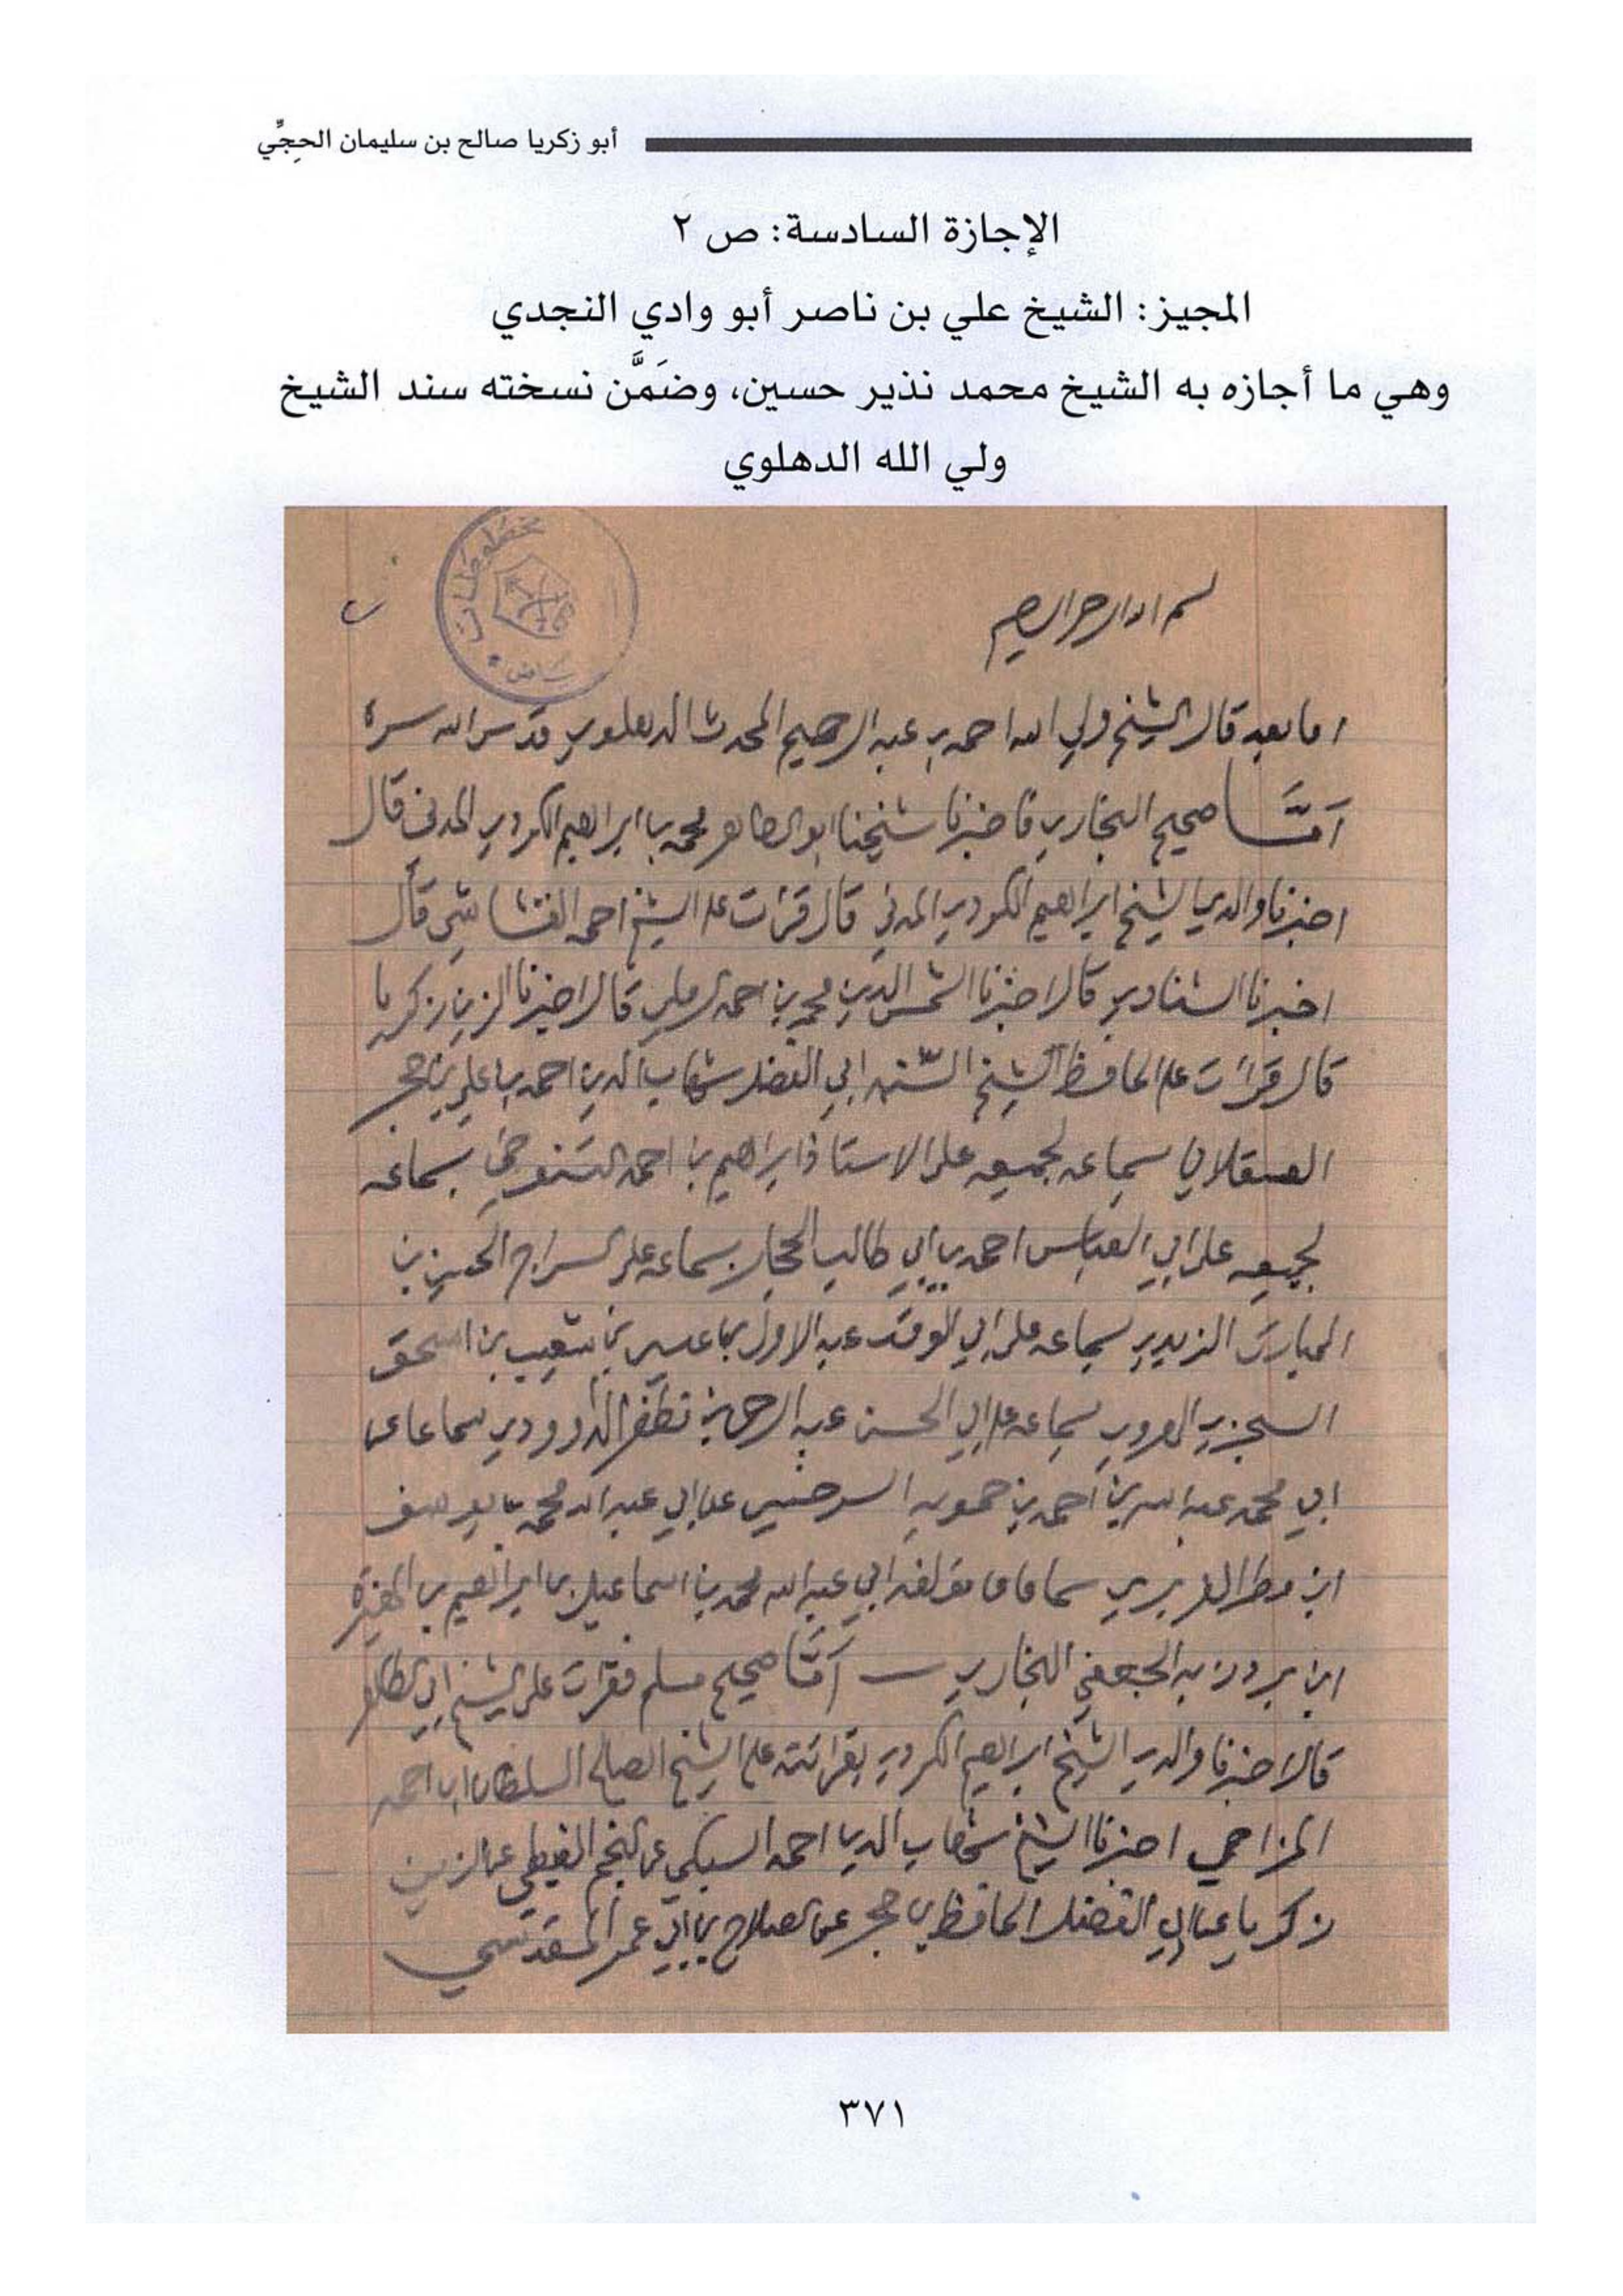 أبو زكريا صالح بن سليمان الحِجِّي
الإجازة السادسة: ص ٢
المجيز: الشيخ علي بن ناصر أبو وادي النجدي
وهي ما أجازه به الشيخ محمد نذير حسين، وضَمَّن نسخته سند الشيخ
ولي الله الدهلوي
مخطوطات
بسم الله الرحمن الرحيم
اما بعد قال الشيخ ولي الله احمد بن عبد الرحيم المحدث الدهلوي قدس الله سره
أمَّا صحيح البخاري فاخبرنا شيخنا ابو الطاهر محمد بن ابراهيم الكردي المدني قال
اخبرنا والدي الشيخ ابراهيم الكردي المدني قال قرئت على الشيخ احمد القشاشي قال
اخبرنا الشناوي قال اخبرنا الشمس الدين محمد بن احمد الرملي قال اخبرنا الزين زكريا
قال قرأت على الحافظ الشيخ السنة ابي الفضل شهاب الدين احمد بن علي بن حجر
العسقلاني بسماعه لجميعه على الاستاذ ابراهيم بن احمد التنوخي بسماعه
لجميعه على ابي العباس احمد بن ابي طالب الحجار بسماعه على السراج الحسين بن
المبارك الزبيدي بسماعه على ابي الوقت عبد الاول بن عيسى بن شعيب بن اسحق
السجزي الهروي بسماعه على ابي الحسن عبد الرحمن بن مظفر الداوودي سماعا عن
ابي محمد عبد الله بن احمد بن حمويه السرخسي عن ابي عبد الله محمد بن يوسف
ابن مطر الفربري سماعا عن مؤلفه ابي عبد الله محمد بن اسماعيل بن ابراهيم بن المغيرة
ابن بردزبه الجعفي البخاري أمَّا صحيح مسلم فقرات على الشيخ ابي الطاهر
قال اخبرنا والدي الشيخ ابراهيم الكردي بقرائته على الشيخ الصالح السلطان ابن احمد
المزاحي اخبرنا الشيخ شهاب الدين احمد السبكي عن النجم الغيطي عن الزين
زكريا عن ابي الفضل الحافظ بن حجر عن الصلاح بن ابي عمر المقدسي
٣٧١